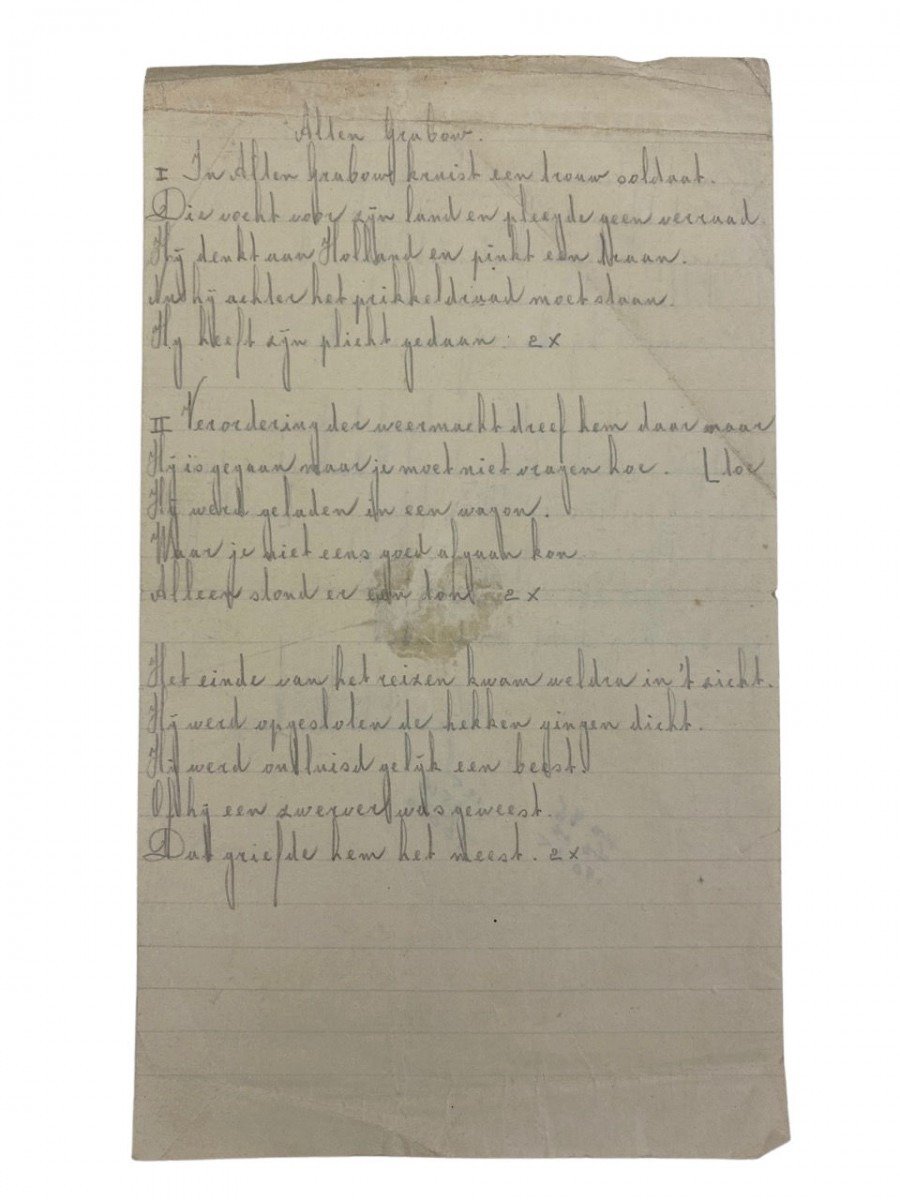 Alten Grabow.
I In Alten Grabow kruist een trouw soldaat.
Die vocht voor zijn land en pleegde geen verraad.
Hij denkt aan Holland en pinkt een traan.
Nu hij achter het prikkeldraad moet staan.
Hy heeft zijn plicht gedaan. 2 x
II Verordering der weermacht dreef hem daar naar
Hij is gegaan maar je moet niet vragen hoe. toe
Hij werd geladen in een wagon.
Waar je niet eens goed afgaan kon
Alleen stond er één ton. 2 x
Het einde van het reizen kwam weldra in 't zicht.
Hij werd opgesloten de hekken gingen dicht.
Hij werd ontluisd gelijk een beest.
Of hij een zwerver was geweest.
Dat griefde hem het meest. 2 x